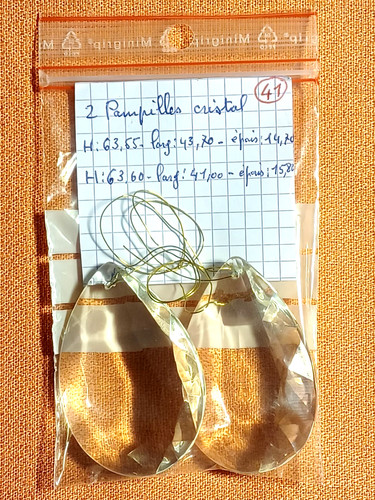 Minigrip® Minigrip®
41
2 Pampilles cristal
H: 63,55 - larg: 43,70 - épais: 14,70
H: 63,60 - larg: 41,00 - épais: 15,80